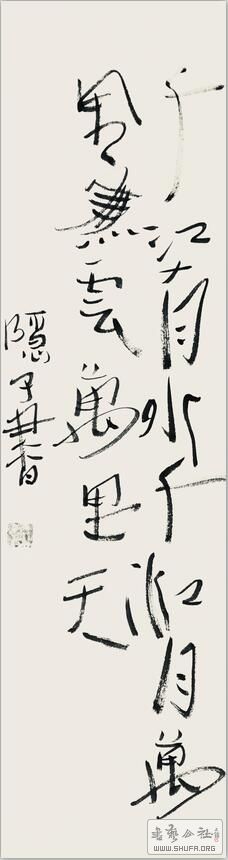 千江有水千江月萬
里無雲萬里天
隱子書
書藝公社
WWW.SHUFA.ORG